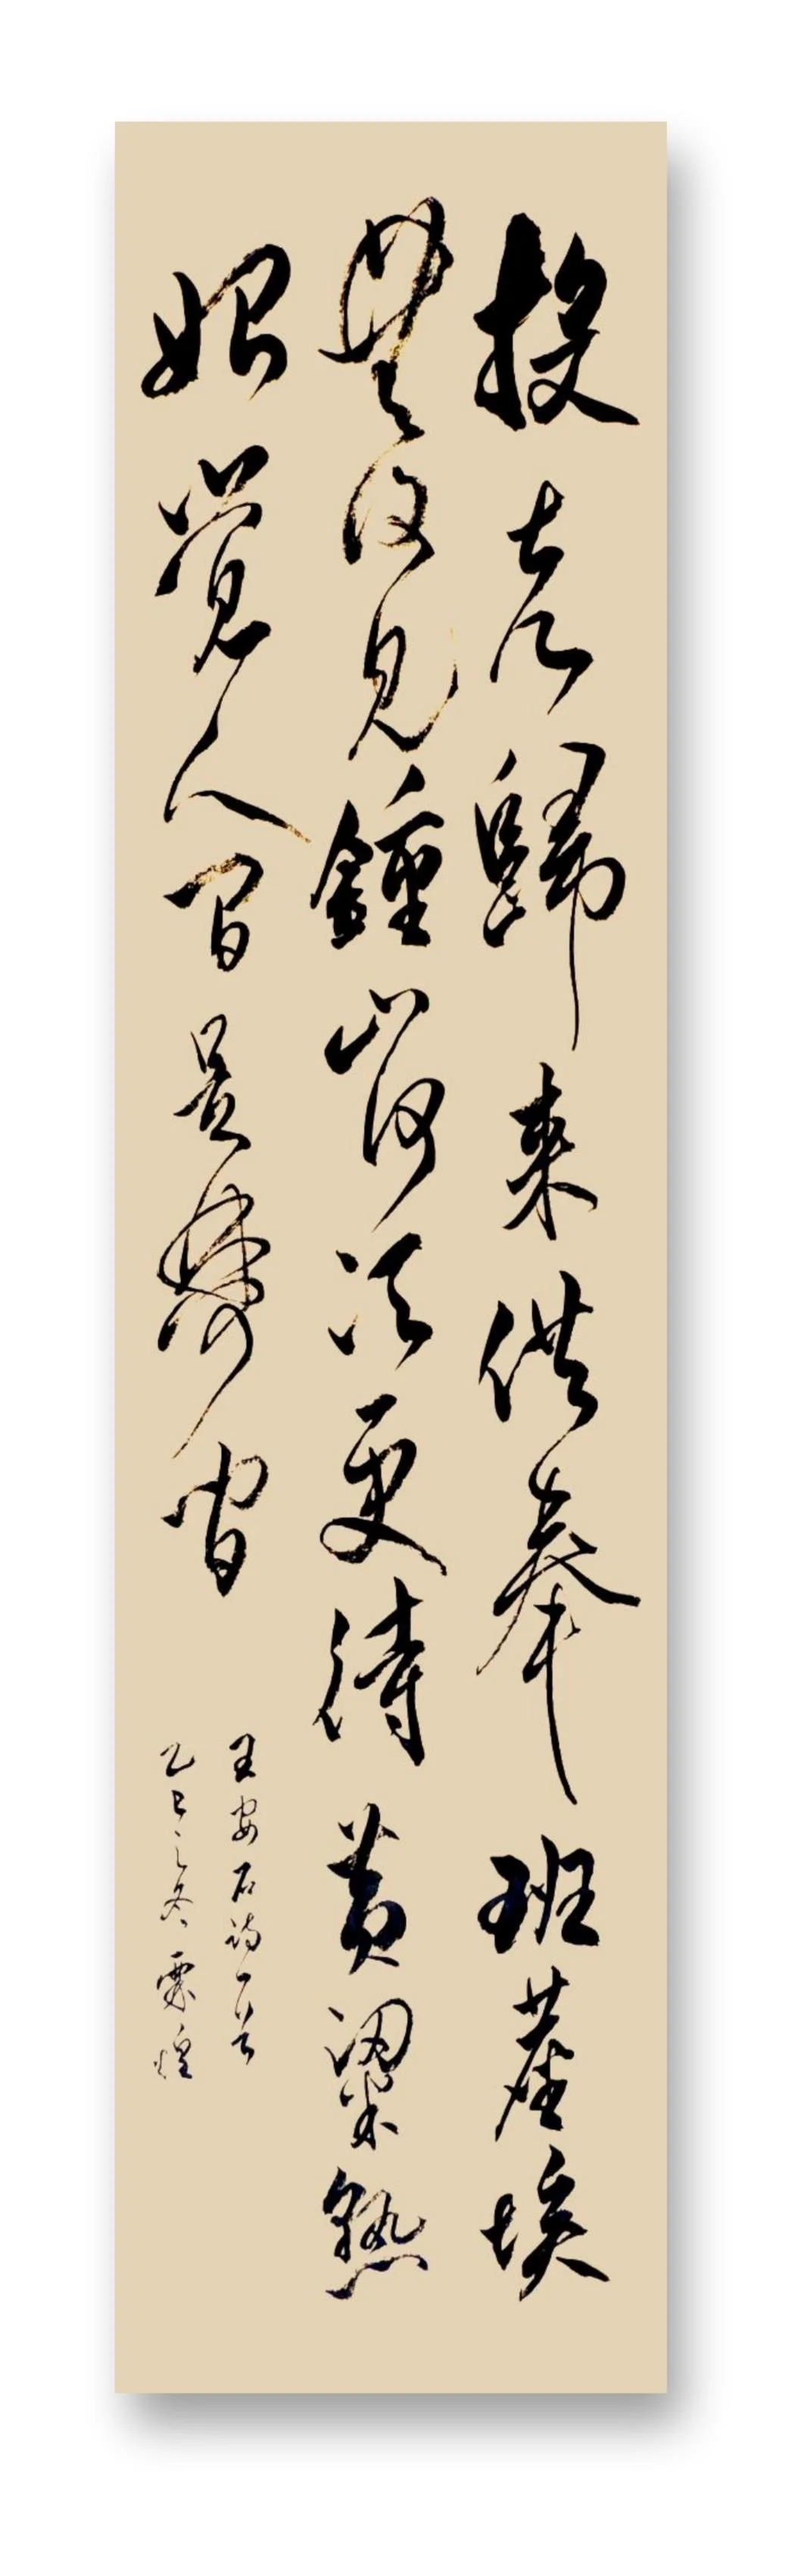 投老歸來供奉班塵埃
無復見鍾山何須更待黃粱熟
始覺人間是夢間
王安石詩一首
乙巳之冬煌